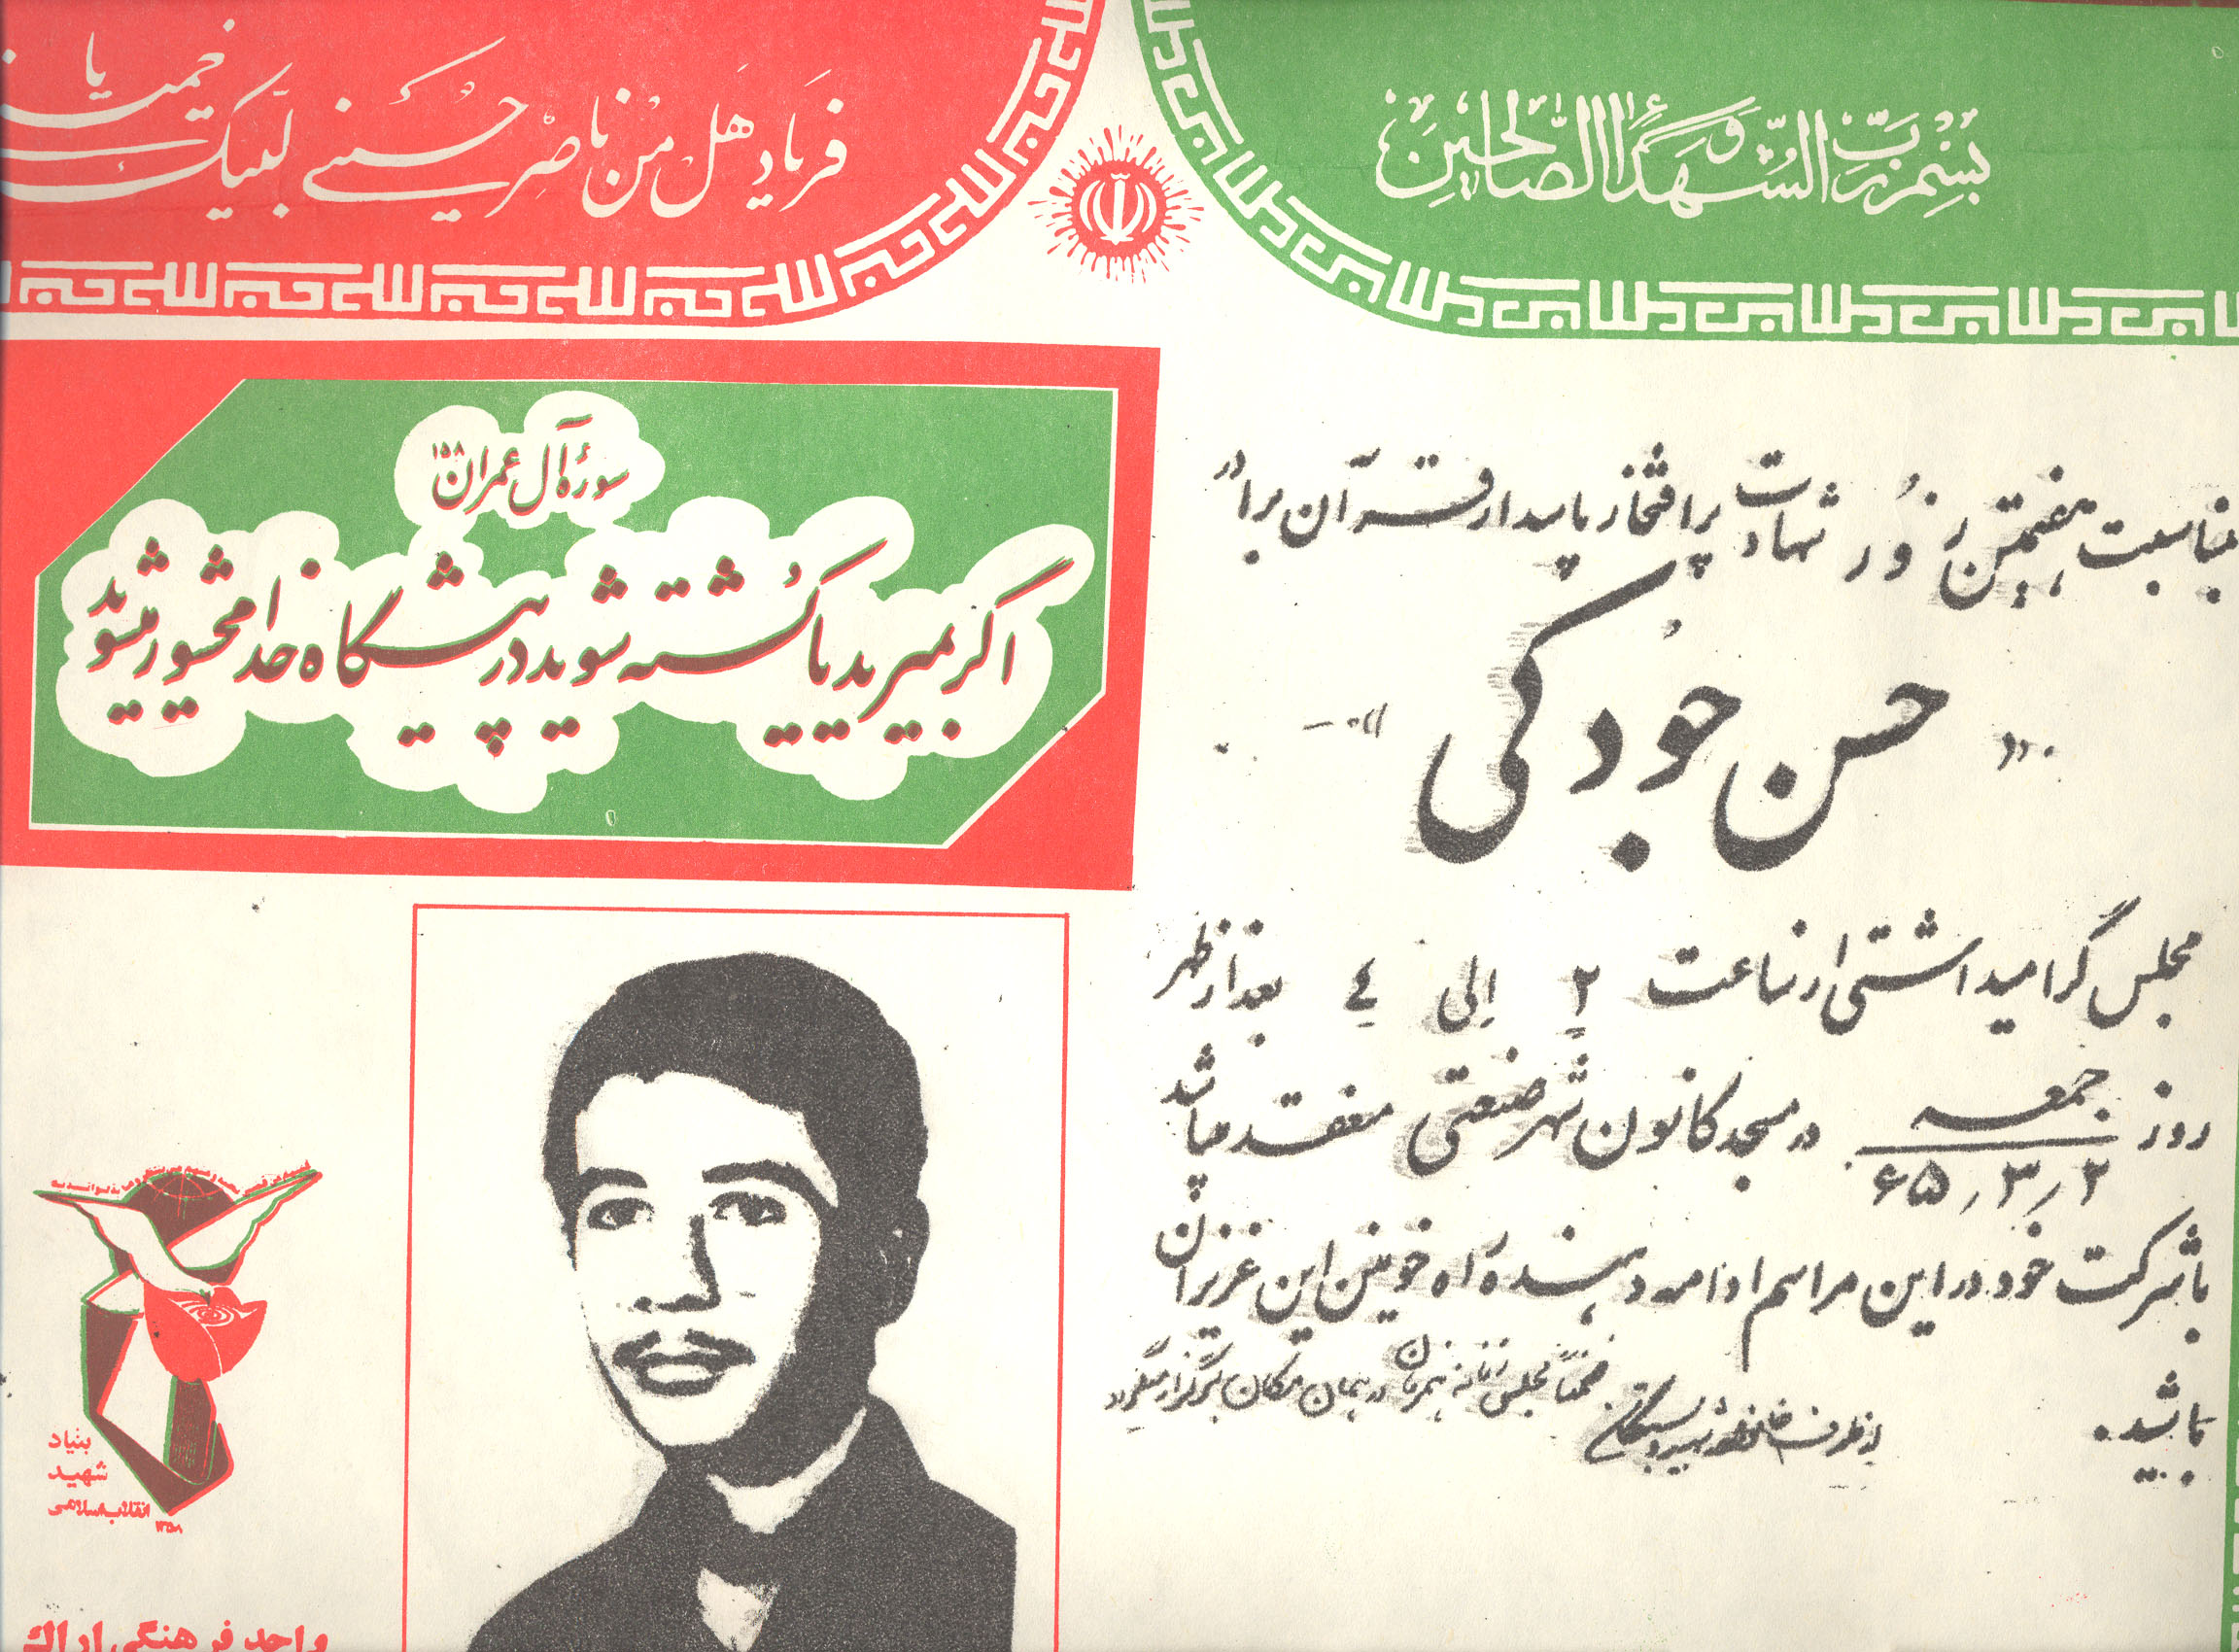 بسم رب الشهداء و الصالحین
فریاد هل من ناصر حسینی لبیک یا خمینی
سورهٔ آل عمران ۱۵۸
اگر بمیرید یا کشته شوید در پیشگاه خدا محشور میشوید
بمناسبت هفتمین روز شهادت پرافتخار پاسدار قرآن برادر
«حسن جودکی»
مجلس گرامیداشتی از ساعت ۲ الی ٤ بعد از ظهر
روز جمعه در مسجد کانون شهر صنعتی منعقد میباشد
۶۵/۳/۲
با شرکت خود در این مراسم ادامه دهنده راه خونین این عزیزان
باشید.
ضمناً مجلس زنانه همزمان در همان مکان برگزار میگردد
از طرف خانواده شهید و بستگان
بنیاد
شهید
انقلاب اسلامی
۱۳۵۸
واحد فرهنگی اراک